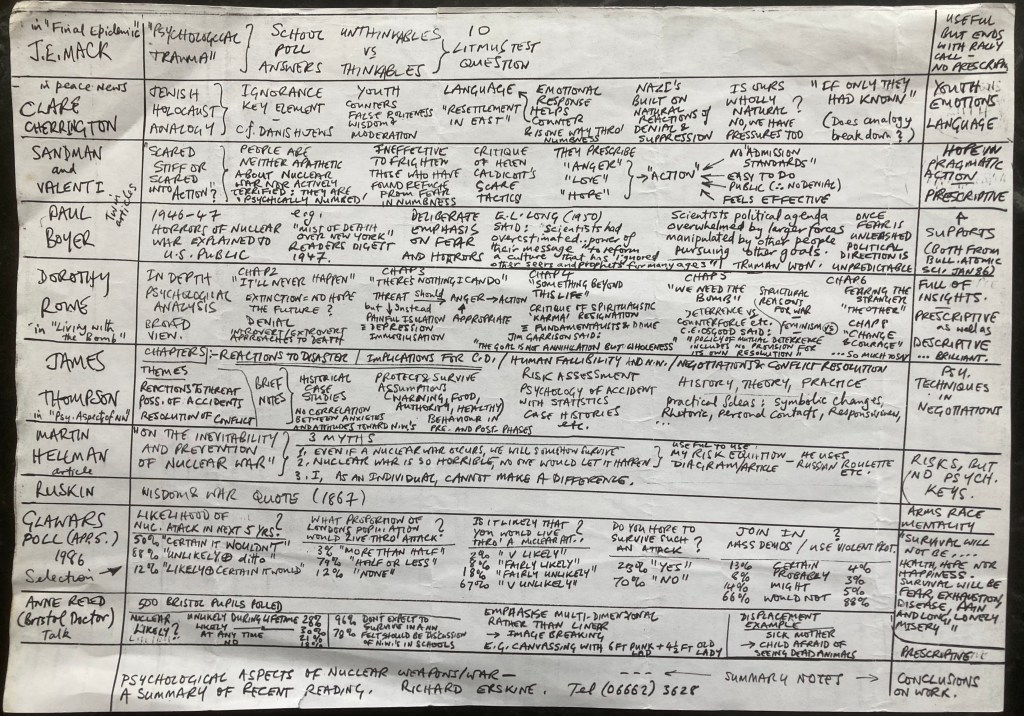 in "Final Epidemic"
J.E. MACK
"PSYCHOLOGICAL
TRAUMA"
SCHOOL
POLL
ANSWERS
UNTHINKABLES
VS
THINKABLES
10
LITMUS TEST
QUESTION
USEFUL
BUT ENDS
WITH RALLY
CALL -
NO PRESCRIPN
in peace news
CLARE
CHERRINGTON
JEWISH
HOLOCAUST
ANALOGY
IGNORANCE
KEY ELEMENT
C.f. DANISH JEWS
YOUTH
COUNTERS
FALSE POLITENESS
WISDOM &
MODERATION
LANGUAGE
"RESETTLEMENT
IN EAST"
EMOTIONAL
RESPONSE
HELPS
CONVEY
& IS ONE WAY THRO'
NUMBNESS
NAZI'S
BUILT ON
NATURAL
REACTIONS OF
DENIAL &
SUPPRESSION
IS OURS
WHOLLY
NATURAL ?
NO, WE HAVE
PRESSURES TOO
"IF ONLY THEY
HAD KNOWN"
(Does analogy
break down?)
YOUTH
EMOTIONS
LANGUAGE
SANDMAN
and
VALENTI.
Twin
article
"SCARED
STIFF OR
SCARED
INTO
ACTION?"
PEOPLE ARE
NEITHER APATHETIC
ABOUT NUCLEAR
WAR NOR ACTIVELY
TERRIFIED: THEY ARE
'PSYCHICALLY NUMBED'
INEFFECTIVE
TO FRIGHTEN
THOSE WHO HAVE
FOUND REFUGE
FROM FEAR
IN NUMBNESS
CRITIQUE
OF HELEN
CALDICOTT'S
SCARE
TACTICS
THEY PRESCRIBE
"ANGER"
"LOVE"
"HOPE"
"ACTION"
NO "ADMISSION
STANDARDS"
EASY TO DO
PUBLIC (∴ NO DENIAL)
FEELS EFFECTIVE
HOPE IN
PRAGMATIC
ACTION
PRESCRIPTIVE
PAUL
BOYER
1946-47
HORRORS OF NUCLEAR
WAR EXPLAINED TO
U.S. PUBLIC
e.g.
"MIST OF DEATH
OVER NEW YORK"
READERS DIGEST
1947.
DELIBERATE
EMPHASIS
ON FEAR
AND HORRORS
E.L. LONG (1950)
SAID: "Scientists had
overestimated...power of
their message to reform
a culture that has ignored
other seers and prophets for many ages"
Scientists political agenda
overwhelmed by larger forces
manipulated by other people
pursuing other goals.
TRUMAN WON.
ONCE
FEAR IS
UNLEASHED
POLITICAL
DIRECTION IS
UNPREDICTABLE
SUPPORTS
(BOTH FROM
BULL. ATOMIC
SCI. JAN 86)
DOROTHY
ROWE
in "Living with
the Bomb"
IN DEPTH
PSYCHOLOGICAL
ANALYSIS
BROAD
VIEW.
CHAP 2
"IT'LL NEVER HAPPEN"
EXTINCTION = NO HOPE
THE FUTURE?
DENIAL
INTROVERT/EXTROVERT
APPROACHES TO DEATH
CHAP 3
"THERE'S NOTHING I CAN DO"
THREAT should ANGER → ACTION
but instead APPROPRIATE
PAINFUL ISOLATION
DEPRESSION
IMMOBILISATION
CHAP 4
"SOMETHING BEYOND
THIS LIFE"
CRITIQUE OF SPIRITUALISTIC
KARMAL RESIGNATION
& FUNDAMENTALISTS & DIVINE
JIM GARRISON SAID:
"THE GOAL IS NOT ANNIHILATION BUT WHOLENESS"
CHAP 5
"WE NEED THE
BOMB"
STRUCTURAL
REASONS
FOR WAR
FEMINISM
DETERRENCE VS
COUNTERFORCE etc.
OSGOOD SAID:
"POLICY OF MUTUAL DETERRENCE
INCLUDES NO PROVISION FOR
ITS OWN RESOLUTION"
CHAP 6
FEARING THE
STRANGER
"THE OTHER"
CHAP 8
"CHANGE
& COURAGE"
...SO MUCH TO SAY
FULL OF
INSIGHTS.
PRESCRIPTIVE
as well as
DESCRIPTIVE
... BRILLIANT.
JAMES
THOMPSON
in "Psy. Aspects of NW"
CHAPTERS:- REACTIONS TO DISASTER / IMPLICATIONS FOR C.D. / HUMAN FALLIBILITY AND N.W. / NEGOTIATIONS & CONFLICT RESOLUTION
THEMES
REACTIONS TO THREAT
POSS. OF ACCIDENTS
RESOLUTION OF
CONFLICT
BRIEF
NOTES
HISTORICAL
CASE
STUDIES
NO CORRELATION
BETWEEN ANXIETIES
AND ATTITUDES TOWARD N.W.'s
PROTECT & SURVIVE
ASSUMPTIONS
(WARNING, FOOD,
AUTHORITY, HEALTHY)
BEHAVIOUR IN
PRE- AND POST- PHASES
RISK ASSESSMENT
PSYCHOLOGY OF ACCIDENT
WITH STATISTICS
CASE HISTORIES
etc.
HISTORY, THEORY, PRACTICE
practical Ideas: symbolic changes,
Rhetoric, Personal Contacts, Responsiveness,
...
PSY.
TECHNIQUES
IN
NEGOTIATIONS
MARTIN
HELLMAN
article
"ON THE INEVITABILITY
AND PREVENTION
OF NUCLEAR WAR"
3 MYTHS
1. EVEN IF A NUCLEAR WAR OCCURS, WE WILL SOMEHOW SURVIVE
2. NUCLEAR WAR IS SO HORRIBLE, NO ONE WOULD LET IT HAPPEN
3. I, AS AN INDIVIDUAL, CANNOT MAKE A DIFFERENCE.
USEFUL TO USE
MY RISK EQUATION - HE USES
DIAGRAM/ARTICLE RUSSIAN ROULETTE
ETC.
RISKS, BUT
NO PSYCH.
KEYS.
RUSKIN
WISDOM & WAR QUOTE (1867)
ARMS RACE
MENTALITY
GLAWARS
POLL (APP 5.)
1986
Selection
LIKELIHOOD OF
NUC. ATTACK IN NEXT 5 YRS.?
50% "CERTAIN IT WOULDN'T"
88% "UNLIKELY ⊕ ditto
12% "LIKELY ⊕ CERTAIN IT WOULD"
WHAT PROPORTION OF
LONDONS POPULATION ?
WOULD LIVE THRO' ATTACK.
3% "MORE THAN HALF"
74% "HALF OR LESS"
12% "NONE"
IS IT LIKELY THAT
YOU WOULD LIVE ?
THRO' A NUCLEAR AT.
2% "V LIKELY"
8% "FAIRLY LIKELY"
18% "FAIRLY UNLIKELY"
67% "V UNLIKELY"
DO YOU HOPE TO
SURVIVE SUCH ?
AN ATTACK
23% "YES"
70% "NO"
JOIN IN ?
MASS DEMOS / USE VIOLENT PROT.
13% CERTAIN 4%
8% PROBABLY 3%
14% MIGHT 5%
66% WOULD NOT 88%
"SURVIVAL WILL
NOT BE ....
HEALTH, HOPE NOR
HAPPINESS.
SURVIVAL WILL BE
FEAR, EXHAUSTION,
DISEASE, PAIN
AND LONG, LONELY
MISERY"
ANNE REED
(Bristol Doctor)
Talk
500 BRISTOL PUPILS POLLED
NUCLEAR
LIKELY?
UNLIKELY DURING LIFETIME
LIKELY
AT ANY TIME
NO
96% DON'T EXPECT TO
SURVIVE IN A NW
78% FELT SHOULD BE DISCUSSION
OF N.W.'s IN SCHOOLS
EMPHASISE MULTI-DIMENSIONAL
RATHER THAN LINEAR
→ IMAGE BREAKING
E.G. CANVASSING WITH 6FT PUNK + 4½FT OLD
LAD LADY
DISPLACEMENT
EXAMPLE
SICK MOTHER
→ CHILD AFRAID OF
SEEING DEAD ANIMALS
PRESCRIPTIVE
PSYCHOLOGICAL ASPECTS OF NUCLEAR WEAPONS/WAR -
A SUMMARY OF RECENT READING. RICHARD ERSKINE. Tel (06662) 3628
--- ← SUMMARY NOTES →
CONCLUSIONS
ON WORK.